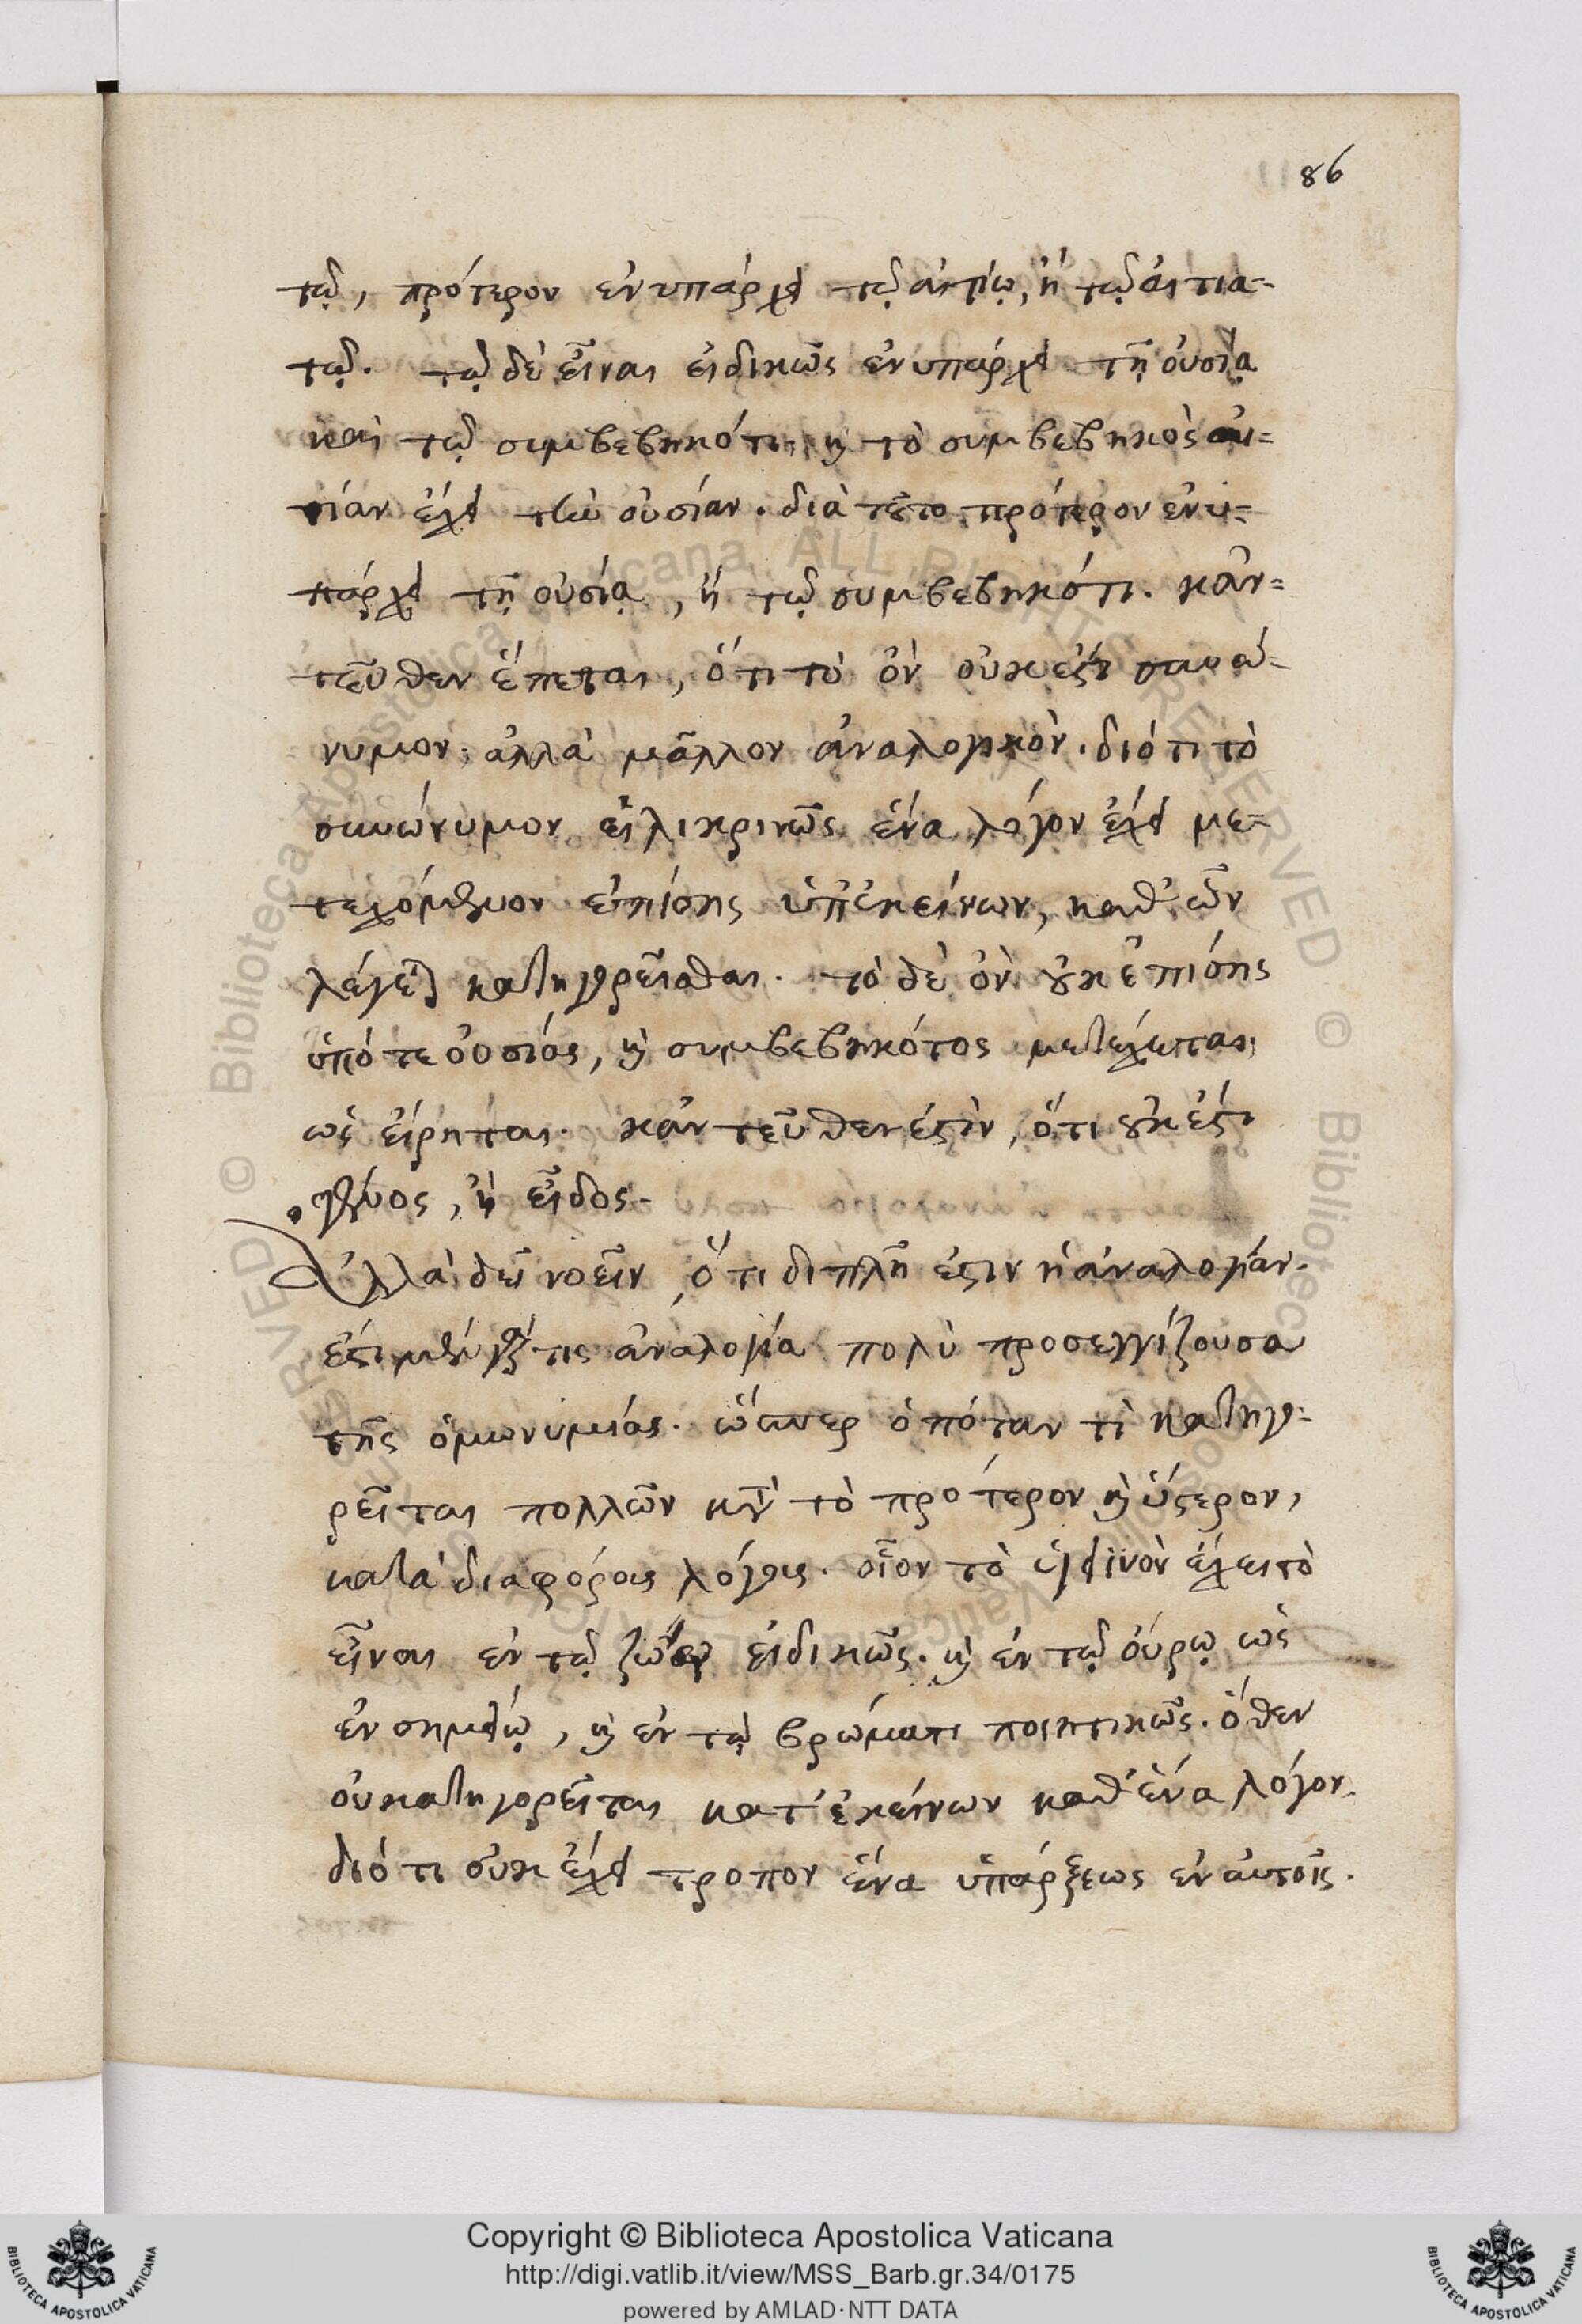 86
τῷ, πρότερον ἐνυπάρχει τῷ αἰτίῳ, ἢ τῷ αἰτια-
τῷ. τῷ δὲ εἶναι εἰδικῶς ἐνυπάρχει τῇ οὐσίᾳ
καὶ τῷ συμβεβηκότι, καὶ τὸ συμβεβηκὸς αἰ-
τίαν ἔχει τὴν οὐσίαν. διὰ τοῦτο πρότερον ἐνυ-
πάρχει τῇ οὐσίᾳ, ἢ τῷ συμβεβηκότι. κἀν-
τεῦθεν ἕπεται, ὅτι τὸ ὂν οὐκ ἔστι συνώ-
νυμον, ἀλλὰ μᾶλλον ἀναλογικὸν. διότι τὸ
συνώνυμον εἰλικρινῶς ἕνα λόγον ἔχει με-
τεχόμενον ἐπίσης ὑπ' ἐκείνων, καθ' ὧν
λέγεται κατηγορεῖσθαι. τὸ δὲ ὂν οὐκ ἐπίσης
ὑπό τε οὐσίας, καὶ συμβεβηκότος μετέχεται,
ὡς εἴρηται. κἀντεῦθέν ἐστιν, ὅτι οὐκ ἔστι
γένος, ἢ εἶδος.
Ἀλλὰ δεῖ νοεῖν, ὅτι διπλῆ ἐστιν ἡ ἀναλογία.
ἔστι μὲν γάρ τις ἀναλογία πολὺ προσεγγίζουσα
τῆς ὁμωνυμίας. ὥσπερ ὁπόταν τὶ κατηγο-
ρεῖται πολλῶν κατὰ τὸ πρότερον καὶ ὕστερον,
κατὰ διαφόρους λόγους. οἷον τὸ ὑγιεινὸν ἔχει τὸ
εἶναι ἐν τῷ ζώῳ εἰδικῶς. καὶ ἐν τῷ οὔρῳ ὡς
ἐν σημείῳ, καὶ ἐν τῷ βρώματι ποιητικῶς. ὅθεν
οὐ κατηγορεῖται κατ' ἐκείνων καθ' ἕνα λόγον.
διότι οὐκ ἔχει τροπον ἕνα ὑπάρξεως ἐν αὐτοῖς.
Copyright © Biblioteca Apostolica Vaticana
http://digi.vatlib.it/view/MSS_Barb.gr.34/0175
powered by AMLAD·NTT DATA
BIBLIOTECA APOSTOLICA VATICANA
BIBLIOTECA APOSTOLICA VATICANA